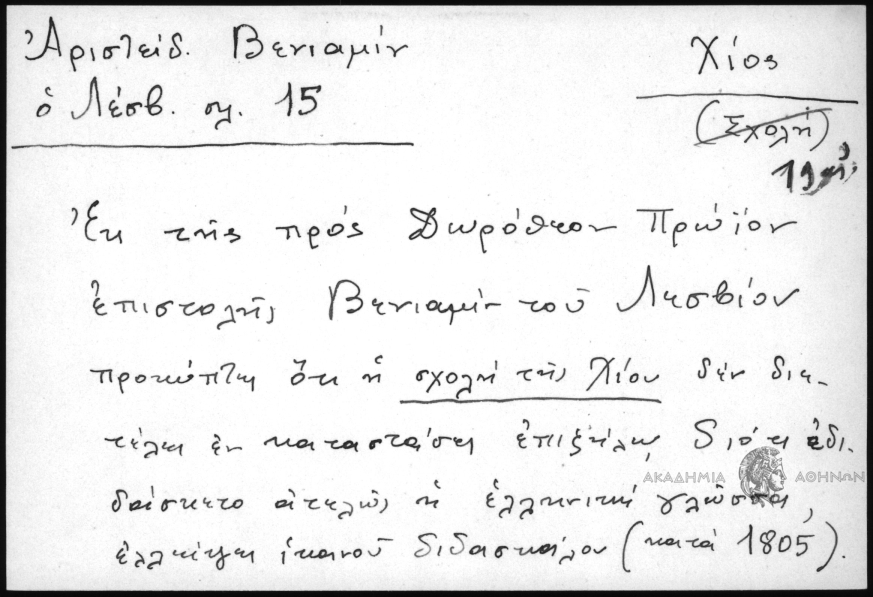 Ἀριστείδ. Βενιαμίν
ὁ Λέσβ. σελ. 15
Χίος
(Σχολή)
Ἐκ τῆς πρός Δωρόθεον Πρώϊον
ἐπιστολῆς Βενιαμίν τοῦ Λεσβίου
προκύπτει ὅτι ἡ σχολή τῆς Χίου δέν διε-
τέλει ἐν καταστάσει ἐπιζήλῳ, διότι ἐδι-
δάσκετο ἀτελῶς ἡ ἑλληνική γλῶσσα,
ἐλλείψει ἱκανοῦ διδασκάλου (κατά 1805).
ΑΚΑΔΗΜΙΑ ΑΘΗΝΩΝ